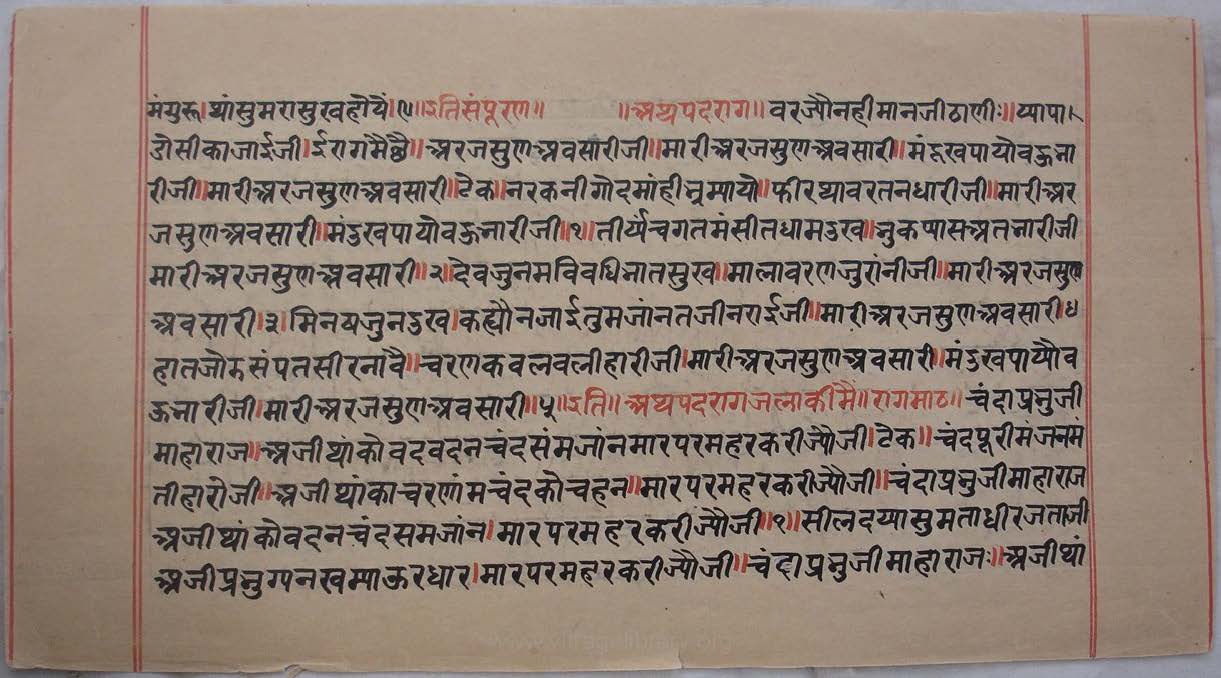 मंगुरू।थांसुमरासुखहोयैं।९॥इतिसंपूरण॥ ॥अथपदराग॥वरज्यौनहीमानजीठाणीः॥प्यापा।
डौसीकाजाईजी।ईरागमैछै॥अरजसुणअवसारीजी॥मारीअरजसुणअवसारी॥मंदूखपायौवऊना
रीजी॥मारीअरजसुणअवसारी॥टेक॥नरकनीगौदमांही भ्रमायौ॥फीरथावरतनधारीजी॥मारीअर
जसुणअवसारी॥मंडुखपायौवऊनारीजी॥१॥तीर्यंचगतमंसीतधामडुख॥भुकप्यासअतनारीजी
मारीअरजसुणअवसारी॥२॥देवजुनमविवधिनातसुख॥मालावरणजुरांनीजी॥मारीअरजसुण
अवसारी।३।मिनषजुनडुख।कह्यौनजाईतुमजांनतजीनराईजी॥मारीअरजसुणअवसारी।४
हातजौरुसंपतसीरनावै॥चरणकवलवलीहारीजी।मारीअरजसुणअवसारी॥मंडुखपाय्यौव
ऊनारीजी।मारीअरजसुणअवसारी॥५॥इति॥अथपदरागजलाकीमै॥रागमाठ॥चंदाप्रभुजी
माहाराज॥अजीथांकौवदवदनचंदसंमजांनमारपरमहरकरीज्यौजी।टेक॥चंदपूरीमंजनमं
तीहारोजी॥अजीथांकाचरणांमचंदकौचहन॥मारपरमहरकरीज्यौजी॥चंदाप्रभुजीमाहाराज
अजीथांकौवदनचंदसमजांन।मारपरमहरकरीज्यौजी॥१॥सीलदय्यासुमताधीरजताजी
अजीप्रभुग्पनखम्पाऊरधार।मारपरमहरकरीज्यौजी॥चंदाप्रभुजीमाहाराजः॥अजीथां